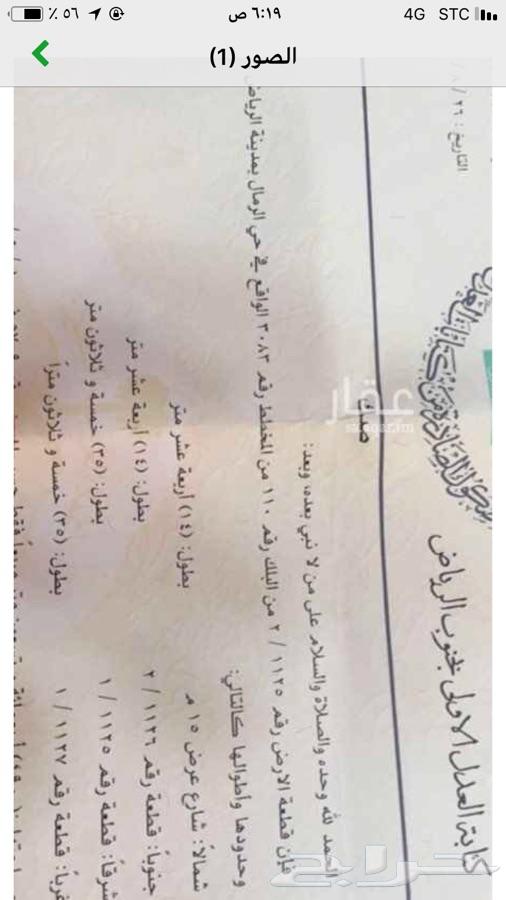 ٪ ٥٦
٦:١٩ ص
4G STC
الصور (1)
كتابة العدل الاولى بجنوب الرياض
التاريخ : ٢٦ / ٨ /
صك
الحمد لله وحده والصلاة والسلام على من لا نبي بعده، وبعد:
فإن قطعة الارض رقم ١١٢٥ / ٢ من البلك رقم ١١٠ من المخطط رقم ٣٠٨٣ الواقع في حي الرمال بمدينة الرياض
وحدودها وأطوالها كالتالي:
شمالاً: شارع عرض ١٥ م بطول: (١٤) أربعة عشر متر
جنوباً: قطعة رقم ١١٢٦ / ٢ بطول: (١٤) أربعة عشر متر
شرقاً: قطعة رقم ١١٢٥ / ١ بطول: (٣٥) خمسة و ثلاثون متر
غرباً: قطعة رقم ١١٢٧ / ١ بطول: (٣٥) خمسة و ثلاثون متراً
عقار
sa.aqar.fm
حراج